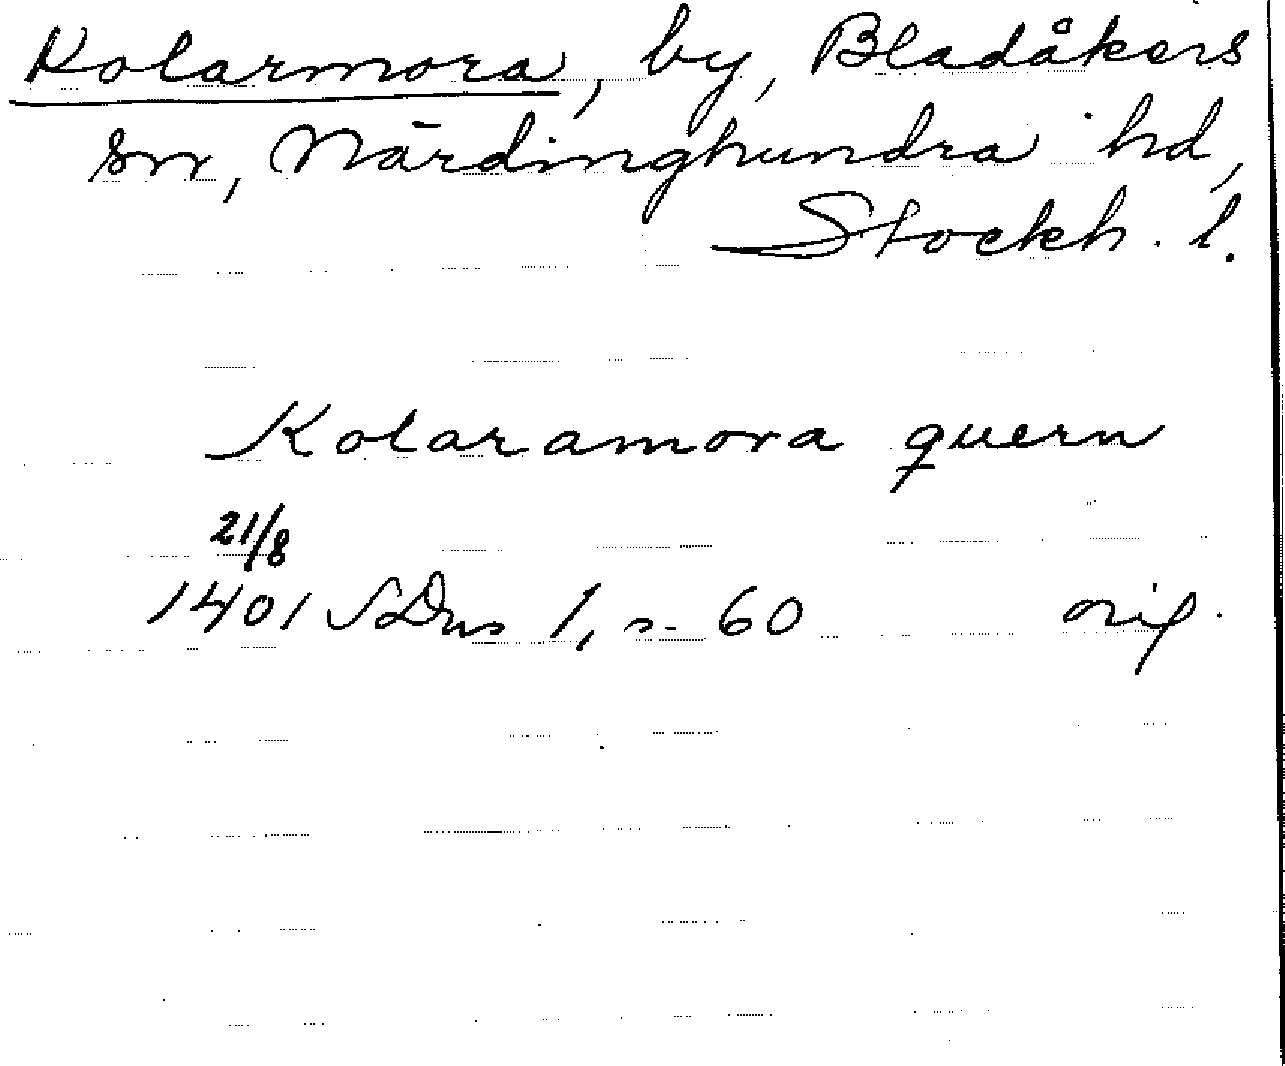 Kolarmora, by, Bladåkers
sn, Närdinghundra hd,
Stockh. l.
Kolaramora quern
21/8
1401 SDns 1, s. 60 orig.